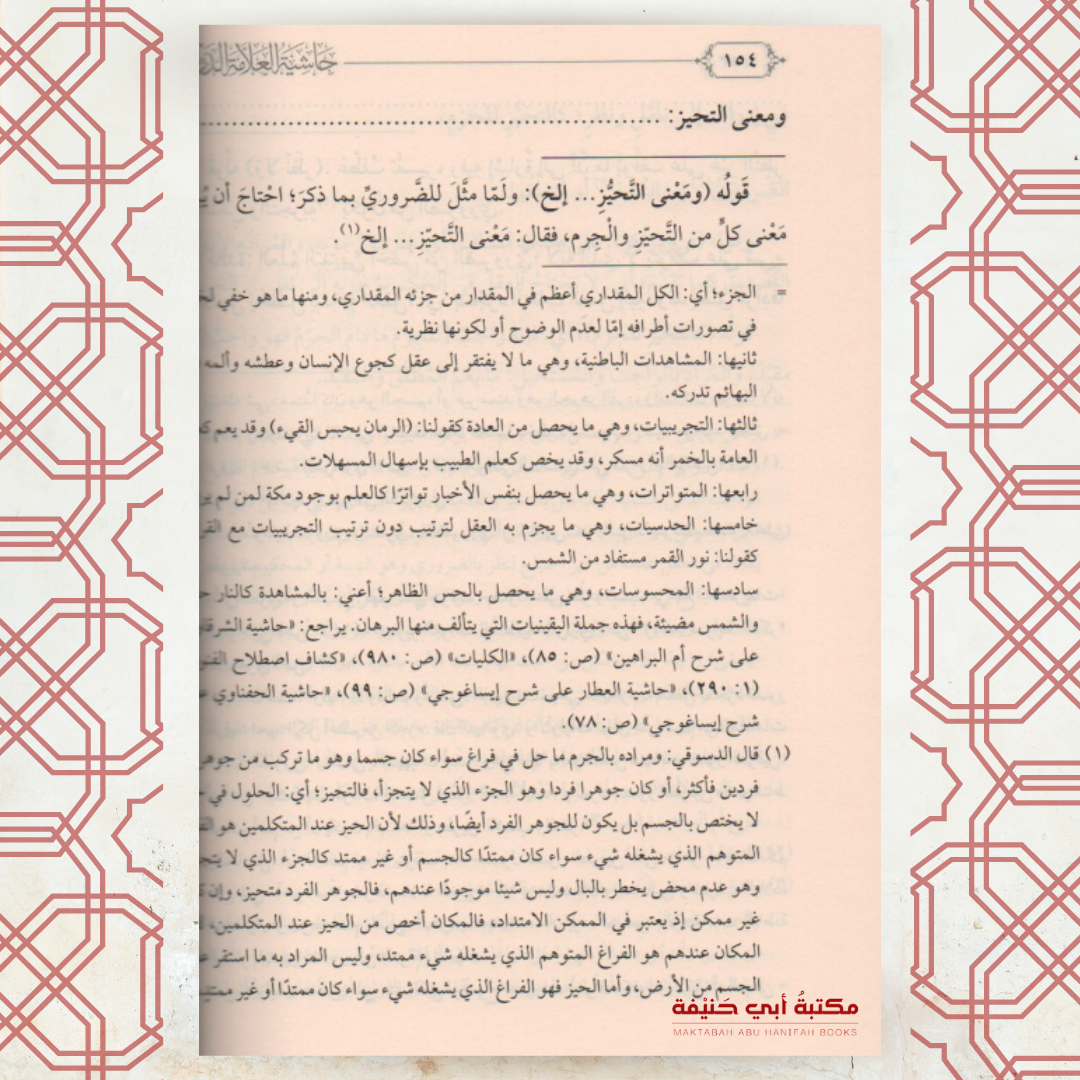 ١٥٤ حاشية العلامة
ومعنى التحيز: ........................................................
قَولُه (ومَعْنى التَّحيُّزِ... إلخ): ولَمّا مثَّلَ للضَّروريِّ بما ذكَرَ؛ احْتاجَ أن
مَعْنى كلٍّ من التَّحيّزِ والْجِرم، فقال: مَعْنى التَّحيّزِ... إلخ(١).
= الجزء؛ أي: الكل المقداري أعظم في المقدار من جزئه المقداري، ومنها ما هو خفي
في تصورات أطرافه إمّا لعدَم الوضوح أو لكونها نظرية.
ثانيها: المشاهدات الباطنية، وهي ما لا يفتقر إلى عقل كجوع الإنسان وعطشه وألمه
البهائم تدركه.
ثالثها: التجريبيات، وهي ما يحصل من العادة كقولنا: (الرمان يحبس القيء) وقد يعم
العامة بالخمر أنه مسكر، وقد يخص كعلم الطبيب بإسهال المسهلات.
رابعها: المتواترات، وهي ما يحصل بنفس الأخبار تواترًا كالعلم بوجود مكة لمن لم
خامسها: الحدسيات، وهي ما يجزم به العقل لترتيب دون ترتيب التجريبيات مع
كقولنا: نور القمر مستفاد من الشمس.
سادسها: المحسوسات، وهي ما يحصل بالحس الظاهر؛ أعني: بالمشاهدة كالنار
والشمس مضيئة، فهذه جملة اليقينيات التي يتألف منها البرهان. يراجع: «حاشية
على شرح أم البراهين» (ص: ٨٥)، «الكليات» (ص: ٩٨٠)، «كشاف اصطلاح
(١: ٢٩٠)، «حاشية العطار على شرح إيساغوجي» (ص: ٩٩)، «حاشية الحفناوي
شرح إيساغوجي» (ص: ٧٨).
(١) قال الدسوقي: ومراده بالجرم ما حل في فراغ سواء كان جسما وهو ما تركب من
فردين فأكثر، أو كان جوهرا فردا وهو الجزء الذي لا يتجزأ، فالتحيز؛ أي: الحلول في
لا يختص بالجسم بل يكون للجوهر الفرد أيضًا، وذلك لأن الحيز عند المتكلمين هو
المتوهم الذي يشغله شيء سواء كان ممتدًا كالجسم أو غير ممتد كالجزء الذي لا
وهو عدم محض يخطر بالبال وليس شيئا موجودًا عندهم، فالجوهر الفرد متحيز، وإن
غير ممكن إذ يعتبر في الممكن الامتداد، فالمكان أخص من الحيز عند المتكلمين،
المكان عندهم هو الفراغ المتوهم الذي يشغله شيء ممتد، وليس المراد به ما استقر
الجسم من الأرض، وأما الحيز فهو الفراغ الذي يشغله شيء سواء كان ممتدًا أو غير
مكتبةُ أبي حَنيْفة
MAKTABAH ABU HANIFAH BOOKS